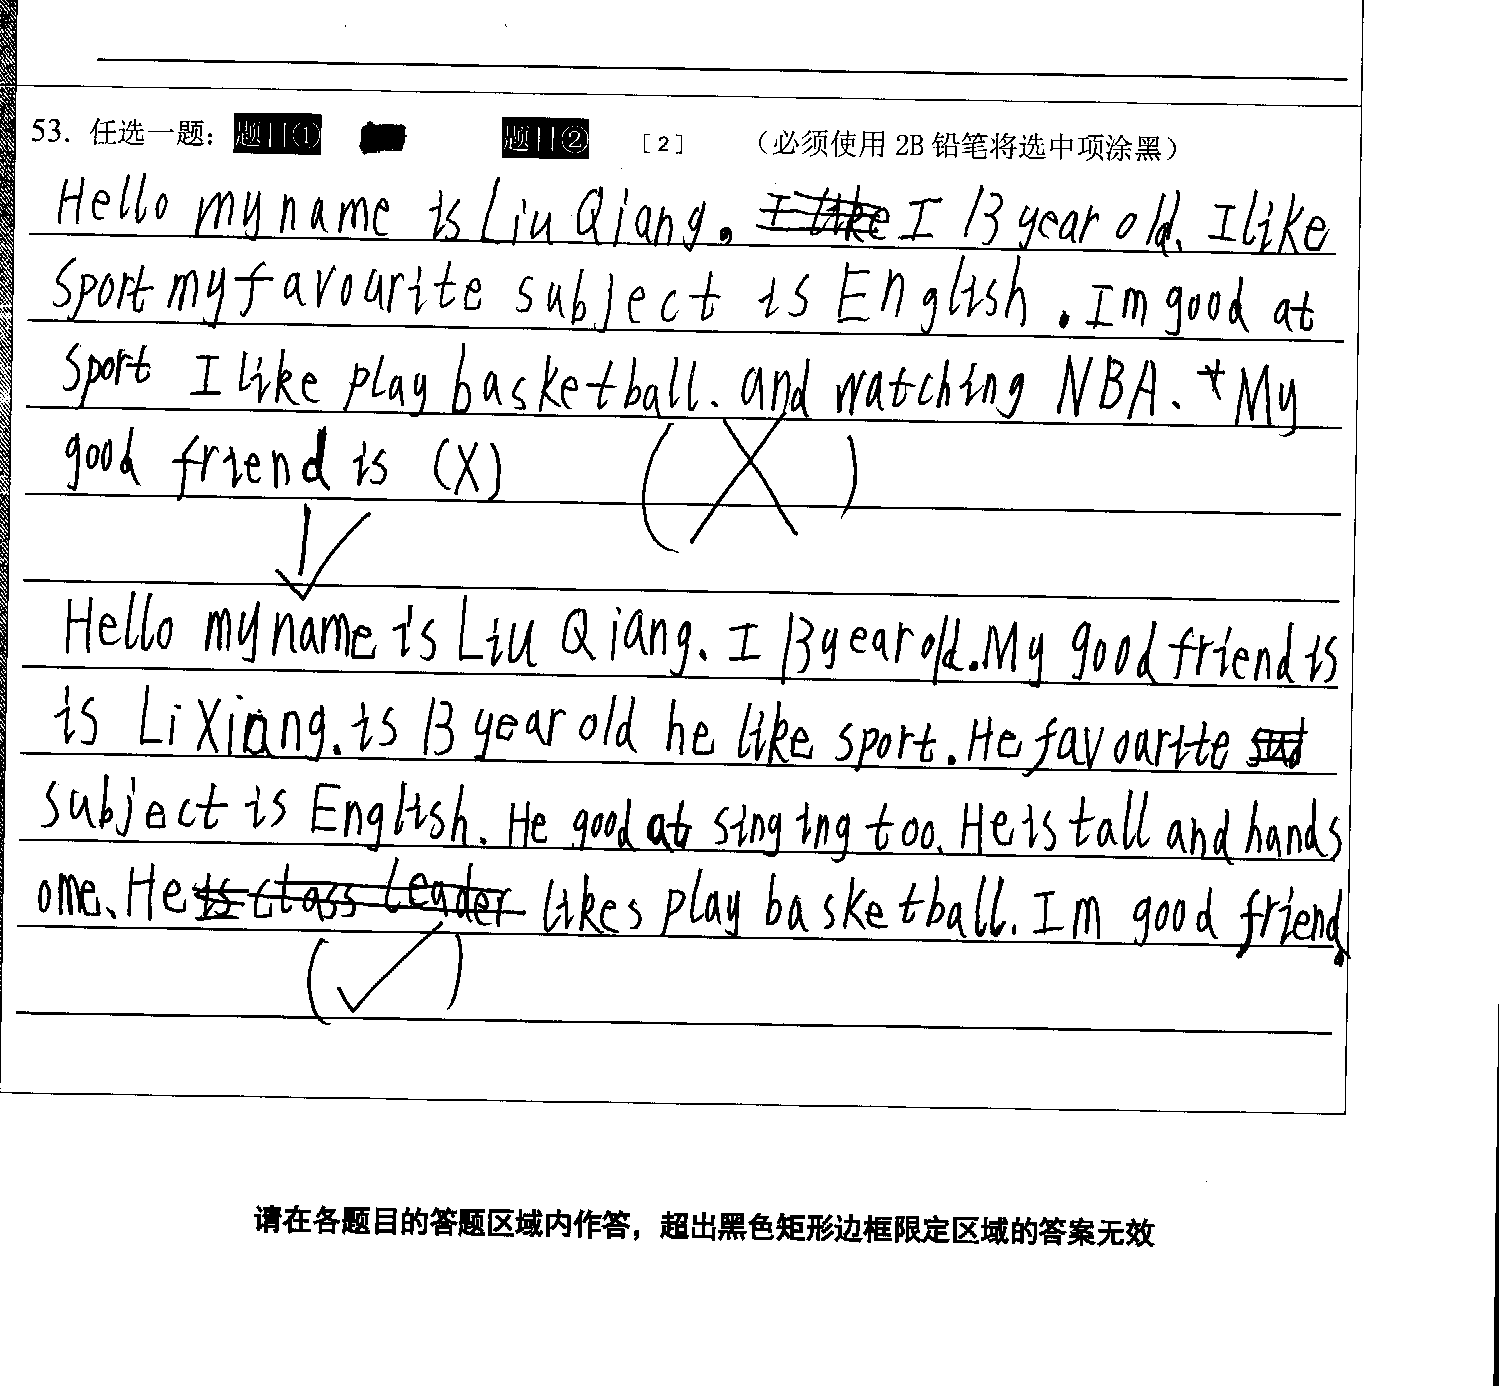 53. 任选一题： 题目① 题目② [2] （必须使用 2B 铅笔将选中项涂黑）
Hello my name is Liu Qiang. I like I 13 year old. I like
Sport my favourite subject is English. Im good at
Sport I like play basketball. and watching NBA. My
good friend is (X)
(X)
Hello my name is Liu Qiang. I 13 year old. My good friend is
is Li Xiang. is 13 year old he like sport. He favourite
subject is English. He good at singing too. He is tall and hands
ome. He is class leader likes play basketball. Im good friend.
(✓)
请在各题目的答题区域内作答，超出黑色矩形边框限定区域的答案无效